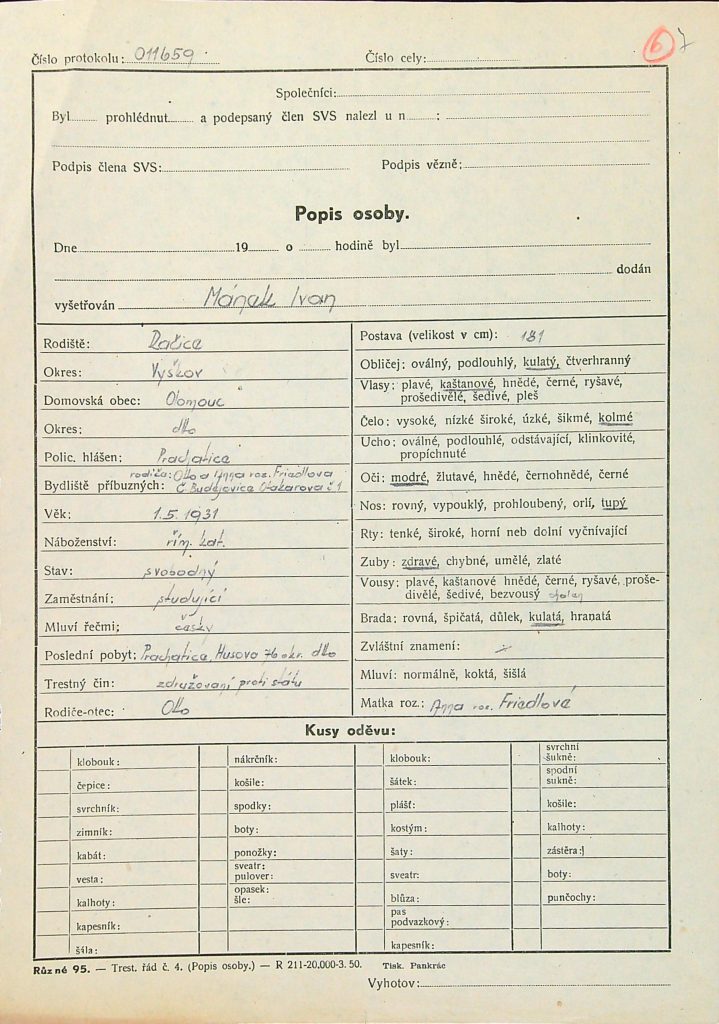 Číslo protokolu: 011659 Číslo cely: 6 7
Společníci:
Byl prohlédnut a podepsaný člen SVS nalezl u n :
Podpis člena SVS: Podpis vězně:
Popis osoby.
Dne 19 o hodině byl
dodán
vyšetřován Mánek Ivan
Rodiště: Račice
Okres: Vyškov
Domovská obec: Olomouc
Okres: dto
Polic. hlášen: Prachatice
rodiče: Otto a Anna roz. Friedlova
Bydliště příbuzných: Č. Budějovice Otakarova č 1
Věk: 1.5.1931
Náboženství: řím. kat.
Stav: svobodný
Zaměstnání: studující
Mluví řečmi; česky
Poslední pobyt: Prachatice, Husova 76 okr. dto
Trestný čin: združovaní proti státu
Rodiče-otec: Otto
Postava (velikost v cm): 181
Obličej: oválný, podlouhlý, kulatý, čtverhranný
Vlasy: plavé, kaštanové, hnědé, černé, ryšavé,
prošedivělé, šedivé, pleš
Čelo: vysoké, nízké široké, úzké, šikmé, kolmé
Ucho: oválné, podlouhlé, odstávající, klinkovité,
propíchnuté
Oči: modré, žlutavé, hnědé, černohnědé, černé
Nos: rovný, vypouklý, prohloubený, orlí, tupý
Rty: tenké, široké, horní neb dolní vyčnívající
Zuby: zdravé, chybné, umělé, zlaté
Vousy: plavé, kaštanové hnědé, černé, ryšavé, proše-
divělé, šedivé, bezvousý
Brada: rovná, špičatá, důlek, kulatá, hranatá
Zvláštní znamení:
Mluví: normálně, koktá, šišlá
Matka roz.: Anna roz. Friedlová
Kusy oděvu:
klobouk:
čepice:
svrchník:
zimník:
kabát:
vesta:
kalhoty:
kapesník:
šála:
nákrčník:
košile:
spodky:
boty:
ponožky:
sveatr:
pulover:
opasek:
šle:
klobouk:
šátek:
plášť:
kostým:
šaty:
sveatr:
blůza:
pas
podvazkový:
kapesník:
svrchní
šukně:
spodní
sukně:
košile:
kalhoty:
zástěra:
boty:
punčochy:
Různé 95. — Trest. řád č. 4. (Popis osoby.) — R 211-20.000-3. 50. Tisk. Pankrác
Vyhotov: